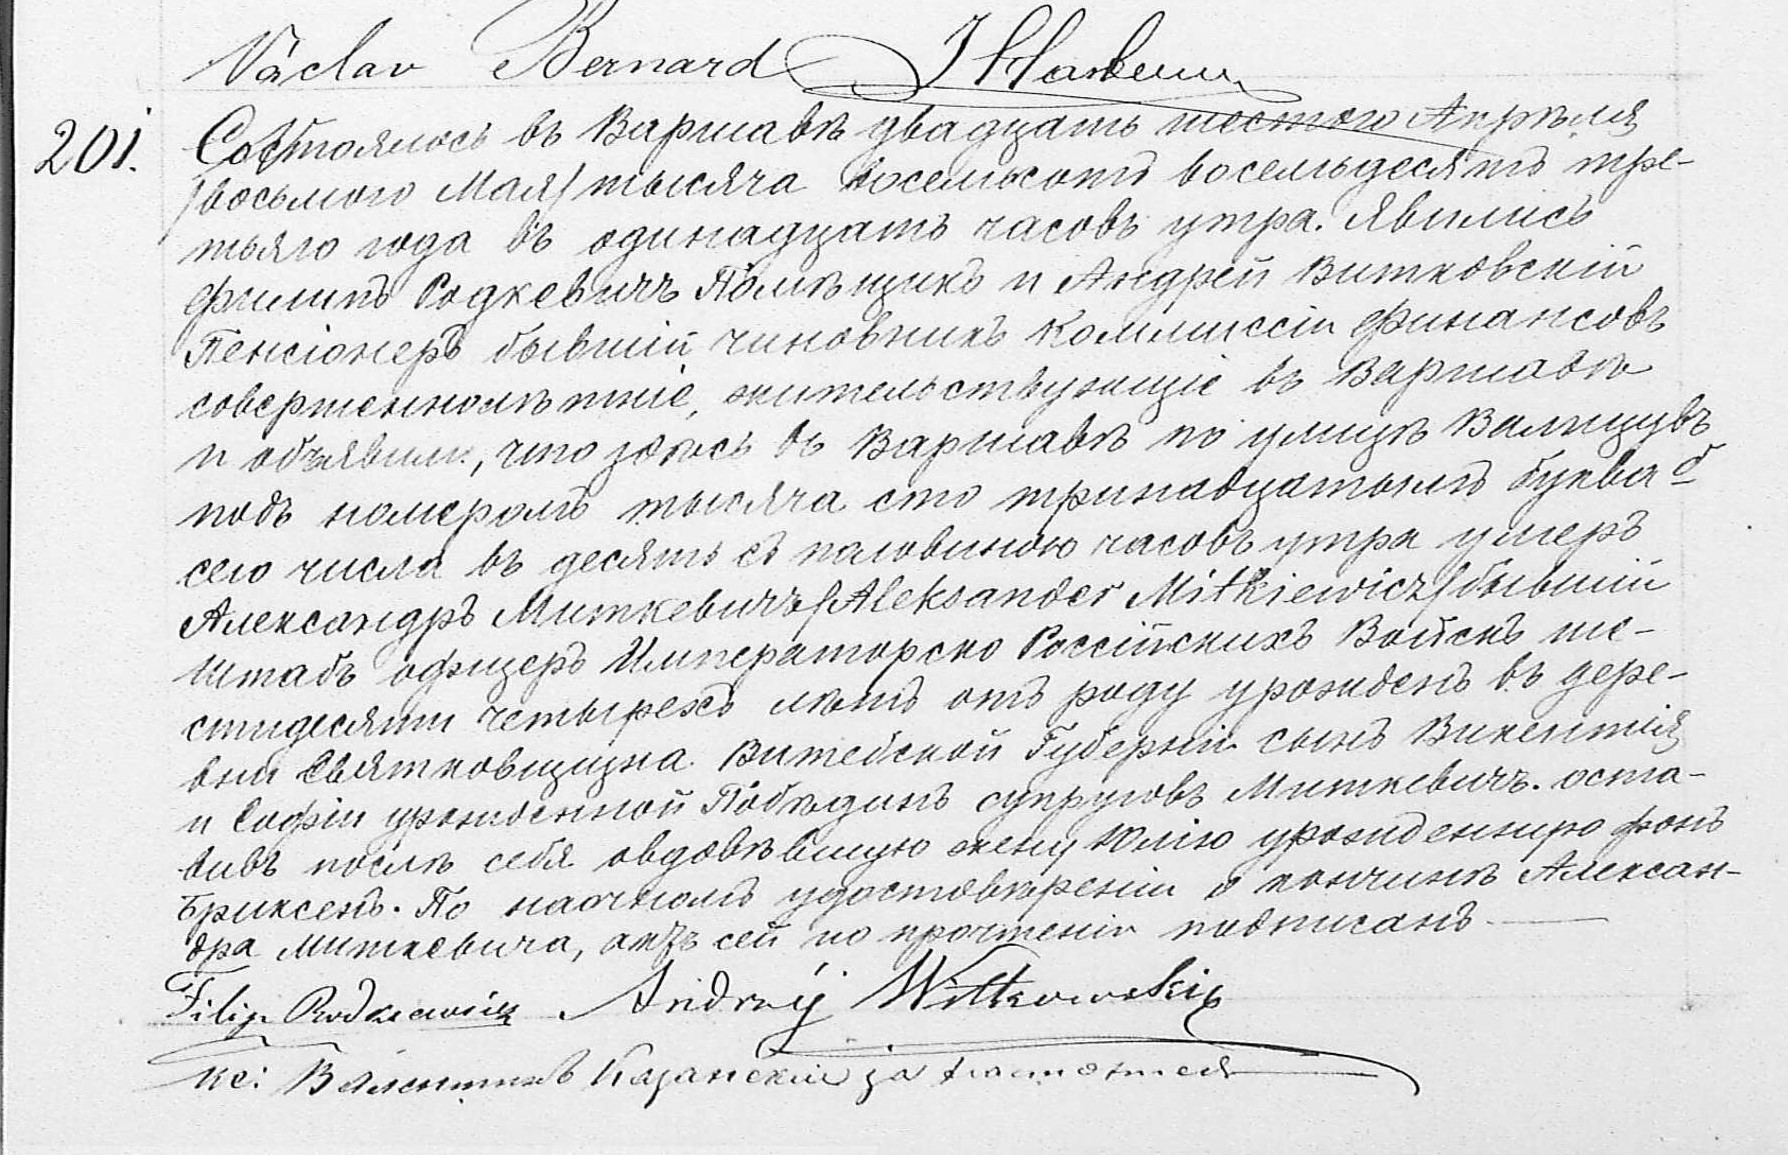 Václav Bernard
201.
Состоялось въ Варшавѣ двадцать шестого Апрѣля
/восьмого Мая/ тысяча восемьсотъ восемьдесятъ тре-
тьяго года въ одинадцать часовъ утра. Явились
Филипъ Родкевичъ Помѣщикъ и Андрей Витковскій
Пенсіонеръ бывшій чиновникъ Коммиссіи Финансовъ
совершеннолѣтніе, жительствующіе въ Варшавѣ
и объявили, что здѣсь въ Варшавѣ по улицѣ Валицувъ
подъ номеромъ тысяча сто тринадцатымъ буква б
сего числа въ десять съ половиною часовъ утра умеръ
Александръ Миткевичъ /Aleksander Mitkiewicz/ бывшій
Штабъ офицеръ Императорско Россійскихъ Войскъ ше-
стидесяти четырехъ лѣтъ отъ роду урожденъ въ дере-
вни Святковщизна Витебской Губерніи сынъ Викентія
и Софіи урожденной Побѣдинъ супруговъ Миткевичъ. оста-
вивъ послѣ себя овдовѣвшую жену Юлію урожденную фонъ
Бриксенъ. По наочномъ удостовѣреніи о кончинѣ Алексан-
дра Миткевича, актъ сей по прочтеніи подписанъ
Filip Rodkiewicz Andrzej Witkowski
Кс: Валентинъ Казанскій за